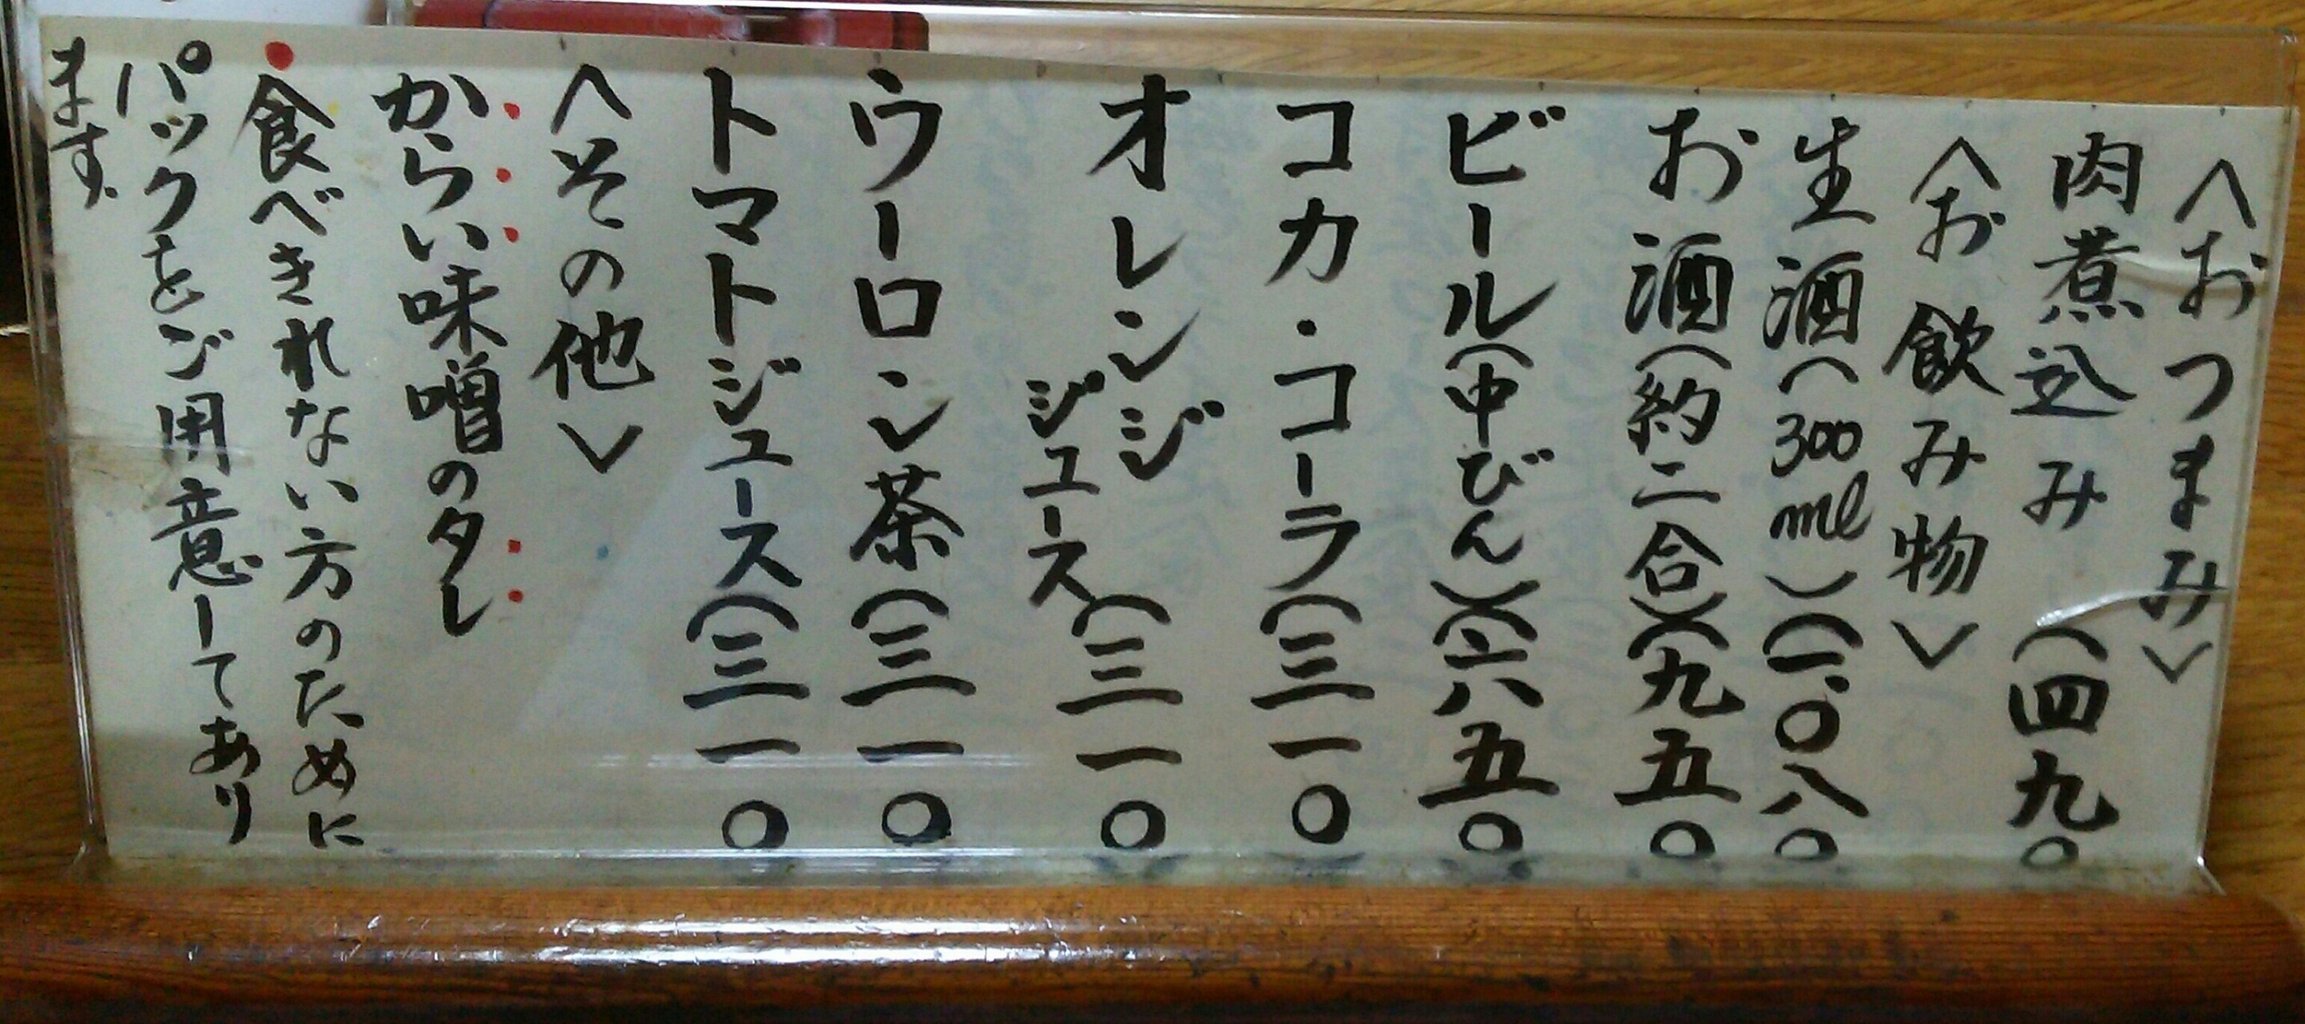 〈おつまみ〉
肉煮込み（四九〇
〈お飲み物〉
生酒（300ml）（一、〇八〇
お酒（約二合）（九五〇
ビール（中びん）（六五〇
コカ・コーラ（三一〇
オレンジジュース（三一〇
ウーロン茶（三一〇
トマトジュース（三一〇
〈その他〉
からい味噌のタレ
食べきれない方のために
パックをご用意してあり
ます。